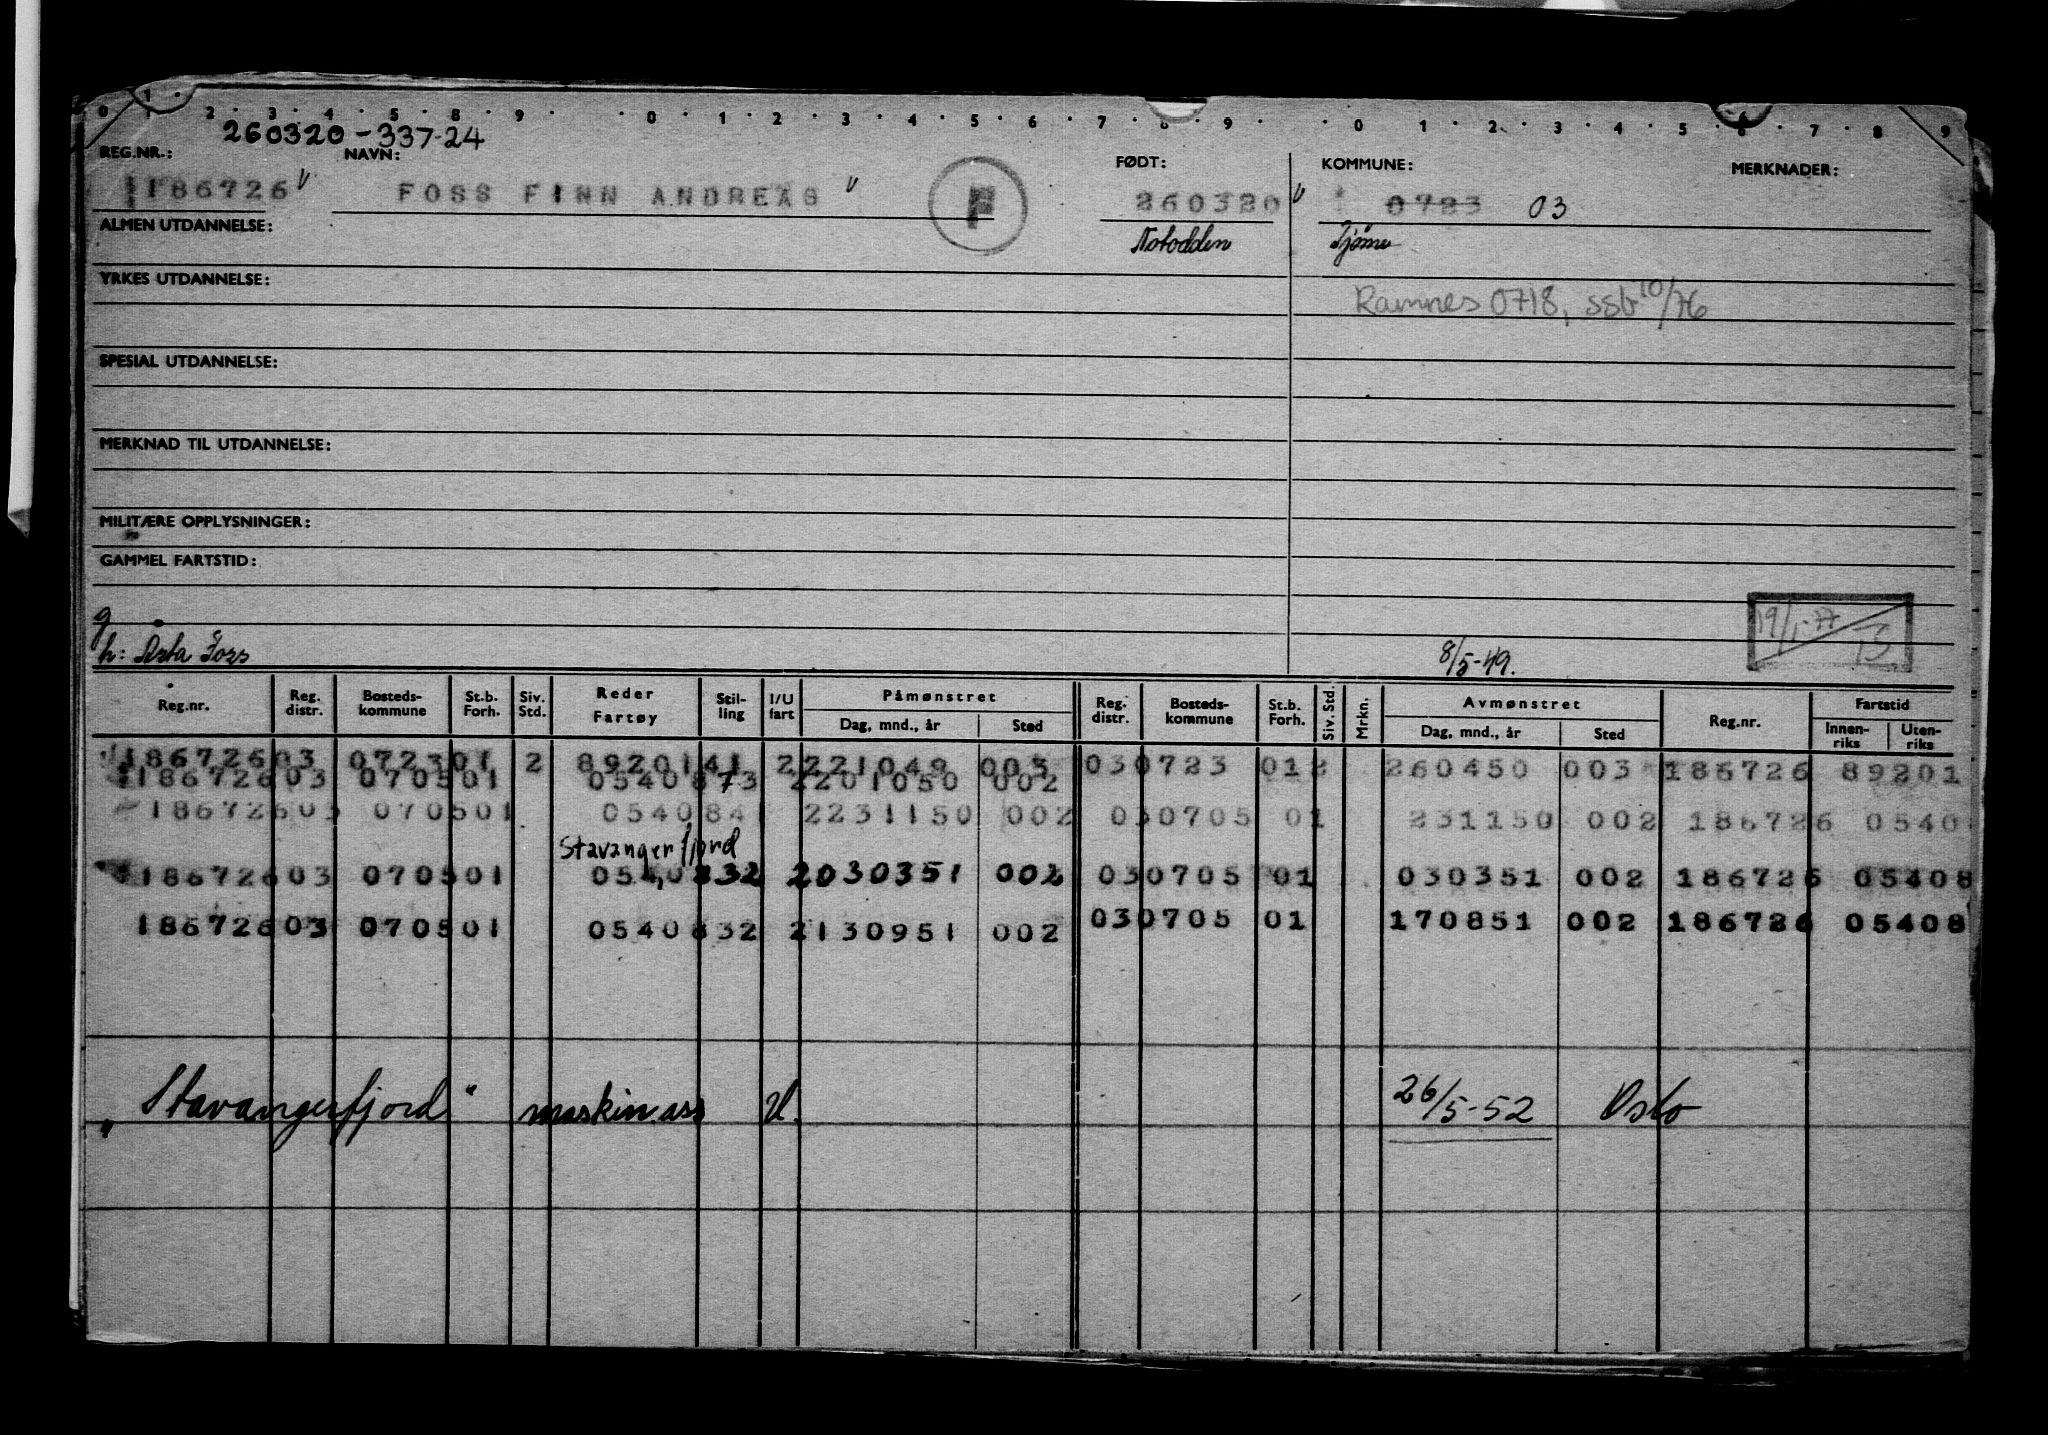 0 1 2 3 4 5 8 9 0 1 2 3 4 5 6 7 8 9 0 1 2 3 4 5 6 7 8 9
260320-337-24
REG.NR.: NAVN: FØDT: KOMMUNE: MERKNADER:
186726 FOSS FINN ANDREAS F 260320 0723 03
ALMEN UTDANNELSE: Notodden Tjøme
YRKES UTDANNELSE:
Ramnes 0718, ssb 10/76
SPESIAL UTDANNELSE:
MERKNAD TIL UTDANNELSE:
MILITÆRE OPPLYSNINGER:
GAMMEL FARTSTID:
g
19/1-77 TS
h: Asta Foss 8/5-49.
Reg.nr. Reg. distr. Bosteds-kommune St.b. Forh. Siv. Std. Reder Fartøy Stil-ling I/U fart Påmønstret Dag, mnd., år Sted Reg. distr. Bosteds-kommune St.b. Forh. Siv. Std. Mrkn. Avmønstret Dag, mnd., år Sted Reg.nr. Fartstid Innen-riks Uten-riks
186726 03 0723 01 2 89201 41 2 221049 003 03 0723 01 2 260450 003 186726 89201
186726 03 0705 01 05408 73 2 201050 002
186726 03 0705 01 05408 41 2 231150 002 03 0705 01 231150 002 186726 0540
Stavangerfjord
186726 03 0705 01 05408 32 2 030351 002 03 0705 01 030351 002 186726 05408
186726 03 0705 01 05408 32 2 130951 002 03 0705 01 170851 002 186726 05408
"Stavangerfjord" maskin.ass U. 26/5-52 Oslo